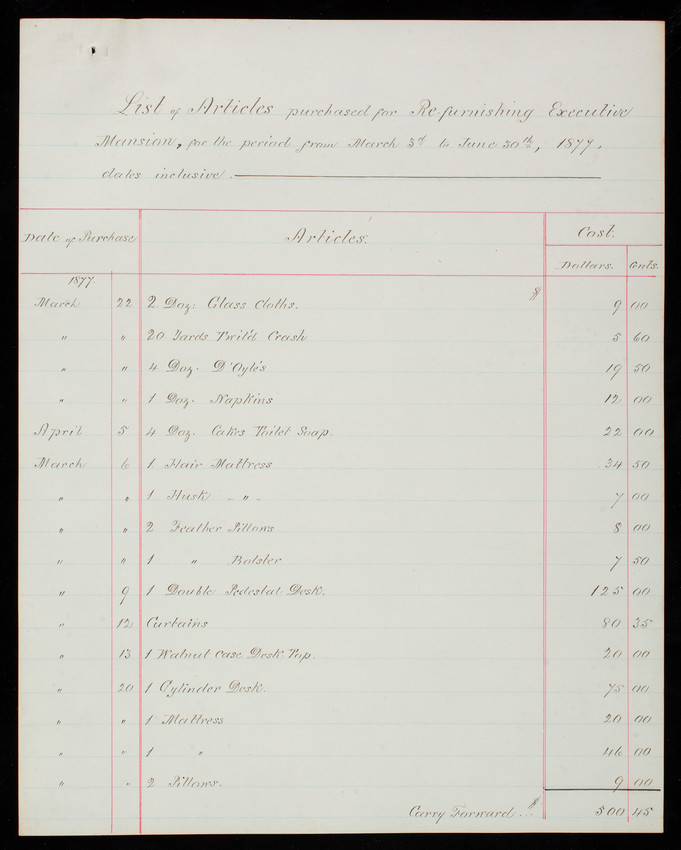 List of Articles purchased for Re-furnishing Executive
Mansion, for the period from March 3rd to June 30th, 1877,
dates inclusive.
Date of Purchase Articles. Cost.
Dollars. Cents.
1877.
March 22 2 Doz: Glass Cloths. $ 9 00
" " 20 Yards Twil'd Crash 5 60
" " 4 Doz. D'Oyle's 19 50
" " 1 Doz. Napkins 12 00
April 5 4 Doz. Cakes Toilet Soap. 22 00
March 6 1 Hair Mattress 34 50
" " 1 Husk - " - 7 00
" " 2 Feather Pillows 8 00
" " 1 " Bolster 7 50
" 9 1 Double Pedestal Desk. 125 00
" 12 Curtains 80 35
" 13 1 Walnut case Desk Top. 20 00
" 20 1 Cylinder Desk. 75 00
" " 1 Mattress 20 00
" " 1 " 46 00
" " 2 Pillows. 9 00
Carry Forward...$ 500 45